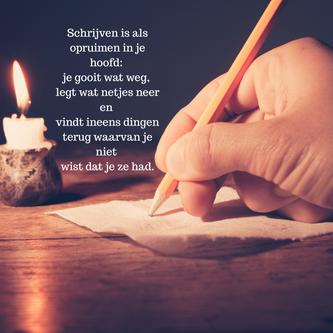 Schrijven is als
opruimen in je
hoofd:
je gooit wat weg,
legt wat netjes neer
en
vindt ineens dingen
terug waarvan je
niet
wist dat je ze had.